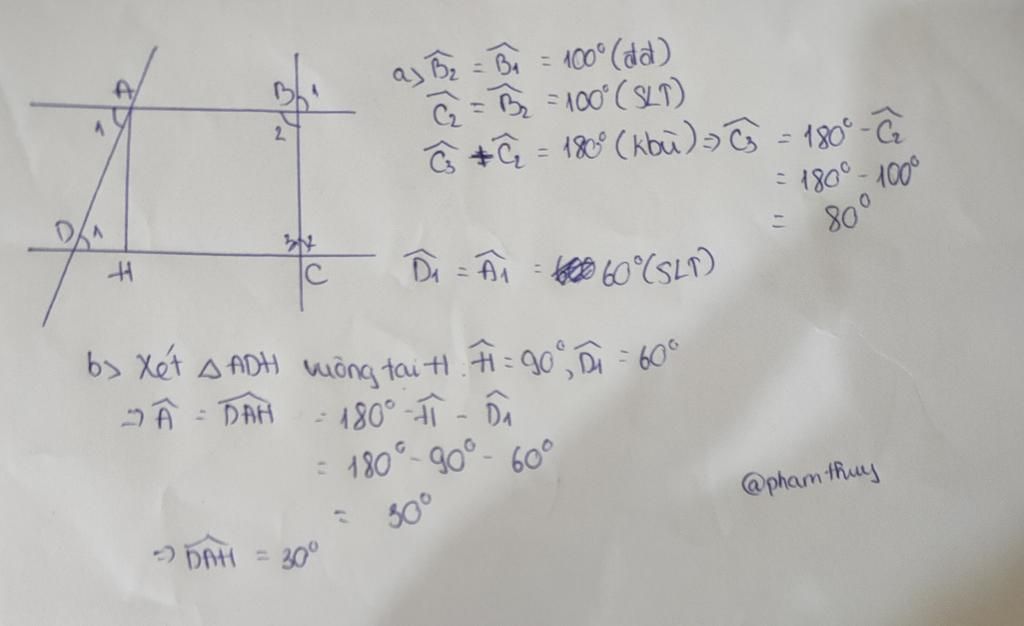 A
B 1
1
2
D 1
3 2
H
C
a) B̂₂ = B̂₁ = 100° (đđ)
Ĉ₂ = B̂₂ = 100° (SLT)
Ĉ₃ + Ĉ₂ = 180° (kbù) => Ĉ₃ = 180° - Ĉ₂
= 180° - 100°
= 80°
D̂₁ = Â₁ = 60° (SLT)
b) Xét △ADH vuông tại H: Ĥ = 90°, D̂₁ = 60°
=> Â = DAĤ = 180° - Ĥ - D̂₁
= 180° - 90° - 60°
= 30°
=> DAĤ = 30°
@phamthuy